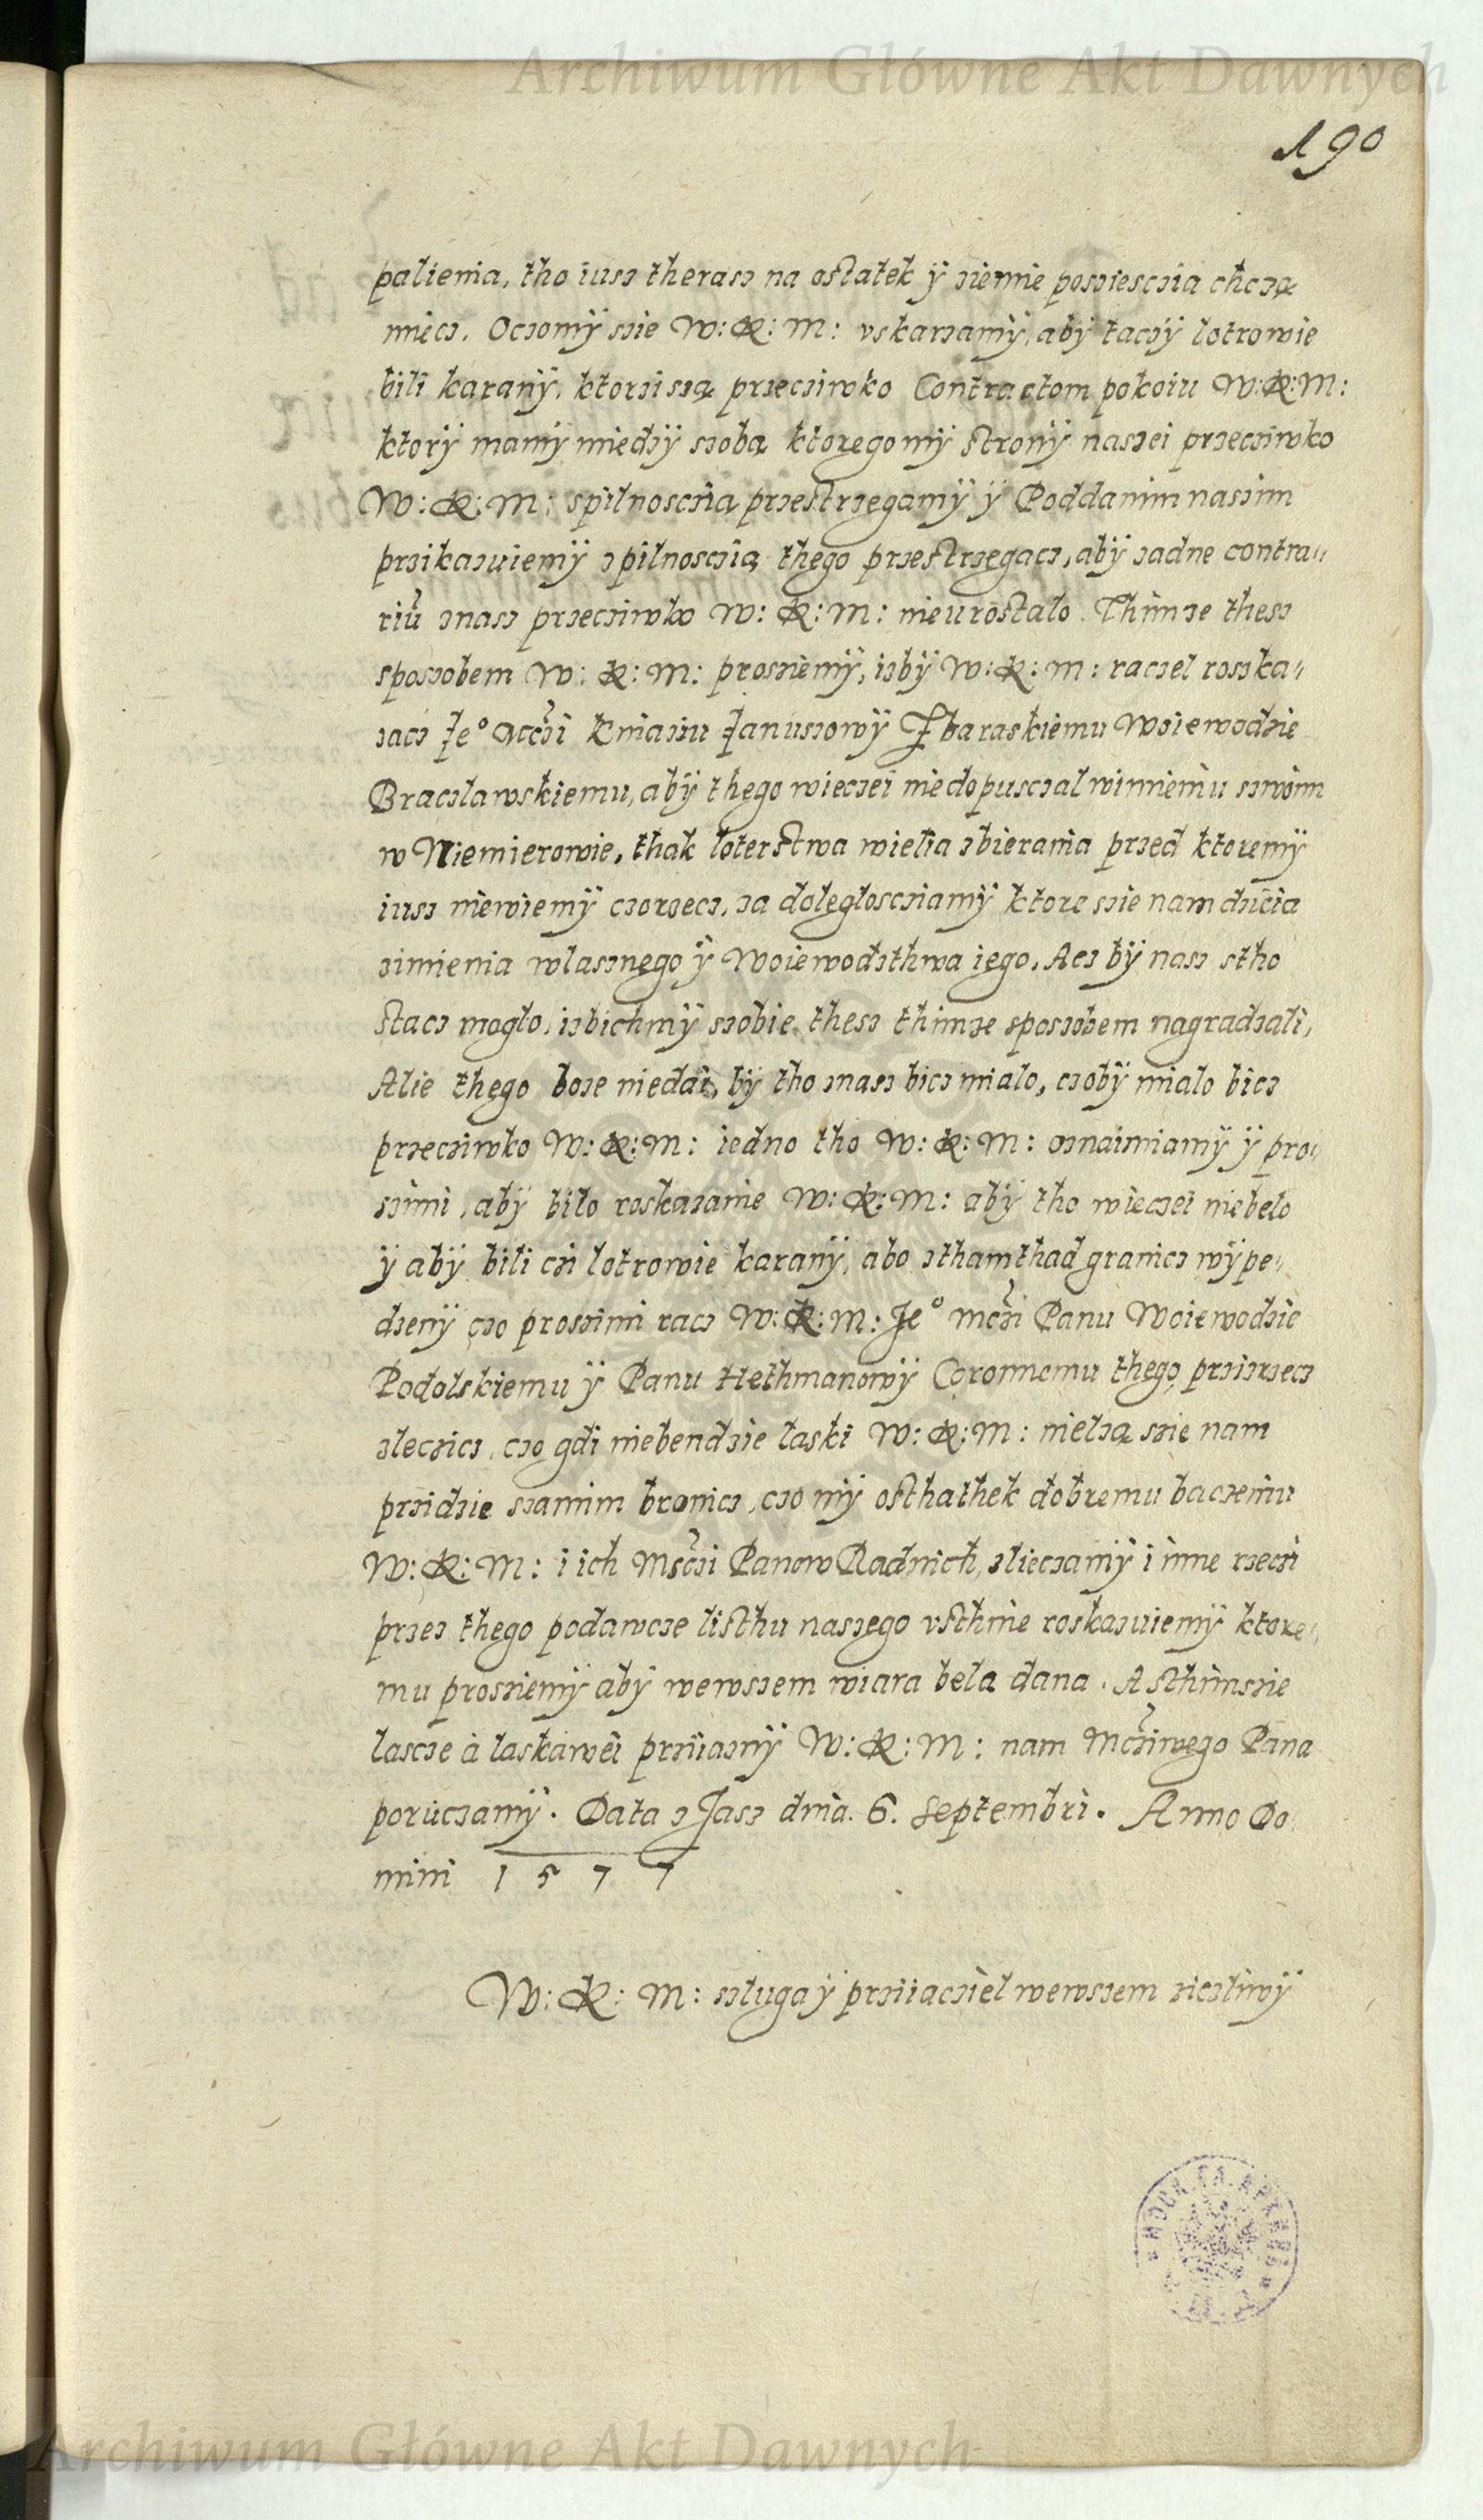 Archiwum Główne Akt Dawnych
190
palienia, tho iusz therasz na ostatek ÿ ziemie posziesczia chczą
miecz. Oczomÿ szie W: K: M: vskarzamÿ, abÿ taczÿ lotrowie
bili karanÿ, ktorzi szą przecziwko Contractom pokoiu W: K: M:
ktorÿ mamÿ miedzÿ szobą ktoregomÿ stronÿ naszei przecziwko
W: K: M: spilnosczią przestrzegamÿ ÿ Poddanim naszim
przikazuiemÿ z pilnosczią thego przestrzegacz, abÿ zadne contra„
riũ znasz przecziwko W: K: M: nieurostalo. Thimze thesz
sposzobem W: K: M: prosziemÿ, izbÿ W: K: M: raczel roszka„
zacz Je° Mczi Kniaziu Januszowÿ Zbaraskiemu Woiewodzie
Braczlawskiemu, abÿ thego wieczei niedopusczal wimieniu szwoim
w Niemierowie, thak loterstwa wielia zbierania przed ktoremÿ
iusz niewiemÿ czorzecz, za dolegloscziamÿ ktore szie nam dzieia
zimienia wlasznego ÿ Woiewodzthwa iego. Acz bÿ nasz stho
stacz moglo, izbichmÿ szobie thesz thimze sposzobem nagradzali,
Alie thego boze niedai, bÿ tho znasz bicz mialo, czobÿ mialo bicz
przecziwko W: K: M: iedno tho W: K: M: oznaimiamÿ ÿ pro„
szimi, abÿ bilo roskazanie W: K: M: abÿ tho wieczei niebelo
ÿ abÿ bili czi lotrowie karanÿ, abo zthamthad granicz wÿpe„
dzenÿ czo proszimi racz W: K: M: Je° mczi Panu Woiewodzie
Podolskiemu ÿ Panu Hethmanowÿ Coronnemu thego przizrzecz
zleczicz, czo gdi niebendzie laski W: K: M: nielzą szie nam
przidzie szamim bronicz, czo mÿ osthathek dobremu baczeniu
W: K: M: i ich Msczi Panow Radnich, zlieczamÿ i inne rzeczi
przez thego podawcze listhu naszego vsthnie roskazuiemÿ ktore„
mu prosziemÿ abÿ wewszem wiara bela dana. A sthimszie
lascze à laskawei prziiaznÿ W: K: M: nam Mcziwego Pana
poruczamÿ. Data z Jasz dnia. 6. Septembri. Anno Do
mini 1 5 7 7
W: K: M: szluga ÿ prziiacziel wewszem ziczliwÿ
Archiwum Główne Akt Dawnych